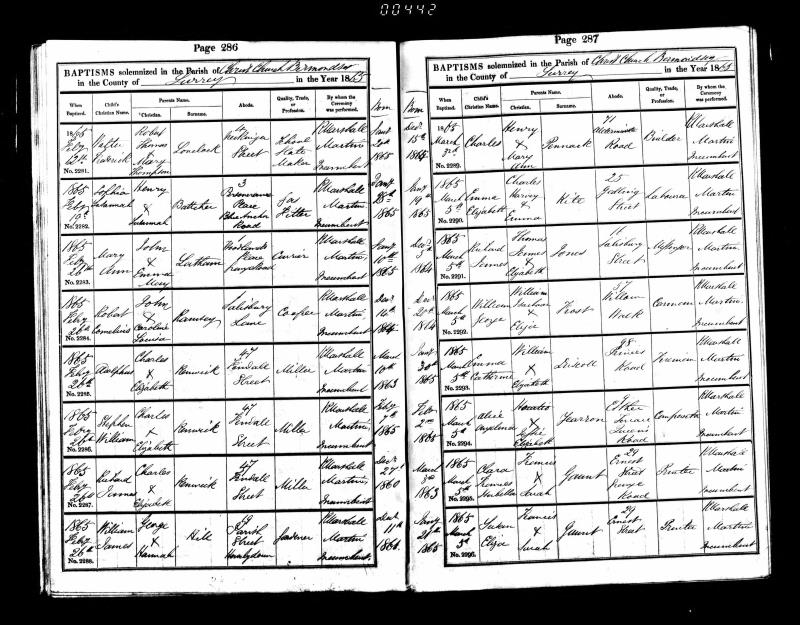 00442
Page 286
BAPTISMS solemnized in the Parish of Christ Church Bermondsey
in the County of Surrey in the Year 1865
When Baptized.
Child's Christian Name.
Parents Name.
Christian.
Surname.
Abode.
Quality, Trade, or Profession.
By whom the Ceremony was performed.
Born
1865
Feby
12th
No. 2281.
Robert
Thomas
Mary
Thompson
Street
Maker
R Marshall
Martin
Incumbent
1865
1865
Feby
19th
No. 2282.
Sophia
Susannah
Henry
+
Susannah
Butcher
3
Place
Blue Anchor
Road
Gas
Fitter
R Marshall
Martin
Incumbent
1865
1865
Feby
26th
No. 2283.
Mary
Ann
John
+
Emma
Mary
Latham
1
Woodlands
Place
Currier
R Marshall
Martin
Incumbent
Jany
10th
1865
1865
Feby
26th
No. 2284.
Robert
Cornelius
John
+
Caroline
Louisa
Ramsey
Salisbury
Lane
Cooper
R Marshall
Martin
Incumbent
Decr
1864
1865
Feby
26th
No. 2285.
Adolphus
Charles
+
Elizabeth
Renwick
47
Fendall
Street
Miller
R Marshall
Martin
Incumbent
March
10th
1863
1865
Feby
26th
No. 2286.
Stephen
William
Charles
+
Elizabeth
Renwick
47
Fendall
Street
Miller
R Marshall
Martin
Incumbent
Feby
7th
1865
1865
Feby
26th
No. 2287.
Richard
James
Charles
+
Elizabeth
Renwick
47
Fendall
Street
Miller
R Marshall
Martin
Incumbent
Decr
27th
1860
1865
Feby
26th
No. 2288.
William
James
George
+
Hannah
Hill
Parish
Street
Horselydown
Gardener
R Marshall
Martin
Incumbent
11th
Page 287
BAPTISMS solemnized in the Parish of Christ Church Bermondsey
in the County of Surrey in the Year 1865
When Baptized.
Child's Christian Name.
Parents Name.
Christian.
Surname.
Abode.
Quality, Trade, or Profession.
By whom the Ceremony was performed.
Born
Decr
15th
1865
1865
March
No. 2289.
Charles
Henry
+
Mary
Ann
Pennack
71
Road
Builder
R Marshall
Martin
Incumbent
Jany
19th
1865
1865
March
5th
No. 2290.
Emma
Elizabeth
Charles
Harvey
+
Emma
Kite
25
Street
Labourer
R Marshall
Martin
Incumbent
Decr
5th
1864
1865
March
5th
No. 2291.
Richard
James
Thomas
James
+
Elizabeth
Jones
11
Salisbury
Street
Messenger
R Marshall
Martin
Incumbent
Decr
20th
1864
1865
March
5th
No. 2292.
William
George
William
+
Eliza
Frost
37
Willow
Walk
Carman
R Marshall
Martin
Incumbent
Jany
30th
1865
1865
March
5th
No. 2293.
Emma
Catherine
William
+
Elizabeth
Driscoll
98
Road
Fireman
R Marshall
Martin
Incumbent
Feby
2nd
1865
March
5th
No. 2294.
Alice
Angelina
Horatio
+
Elizabeth
Fearron
Esther
Road
Compositor
R Marshall
Martin
Incumbent
March
1863
1865
March
5th
No. 2295.
Clara
Frances
Francis
+
Sarah
Gaunt
29
Ernest
Street
George
Road
Printer
R Marshall
Martin
Incumbent
Jany
1865
1865
March
5th
No. 2296.
Eliza
Francis
+
Sarah
Gaunt
29
Ernest
Street
Printer
R Marshall
Martin
Incumbent